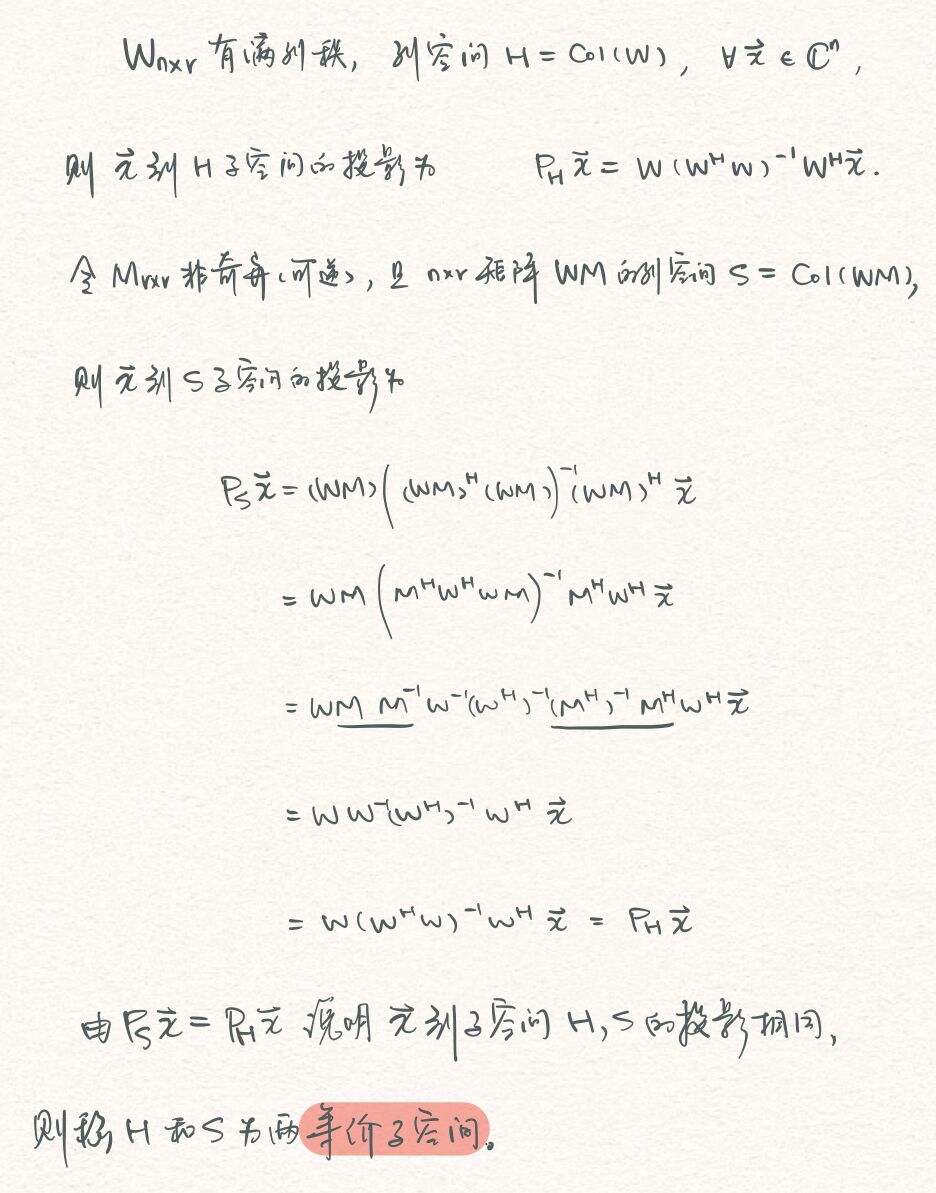 Wₙₓᵣ 有满列秩, 列空间 H = Col(W), ∀ x⃗ ∈ ℂⁿ,
则 x⃗ 到 H 子空间的投影为 P_H x⃗ = W(WᴴW)⁻¹Wᴴx⃗.
令 Mᵣₓᵣ 非奇异(可逆), 且 n×r 矩阵 WM 的列空间 S = Col(WM),
则 x⃗ 到 S 子空间的投影为
P_S x⃗ = (WM)((WM)ᴴ(WM))⁻¹(WM)ᴴ x⃗
= WM(MᴴWᴴWM)⁻¹MᴴWᴴx⃗
= WM M⁻¹W⁻¹(Wᴴ)⁻¹(Mᴴ)⁻¹MᴴWᴴx⃗
= WW⁻¹(Wᴴ)⁻¹Wᴴ x⃗
= W(WᴴW)⁻¹Wᴴ x⃗ = P_H x⃗
由 P_S x⃗ = P_H x⃗ 说明 x⃗ 到子空间 H, S 的投影相同,
则称 H 和 S 为两等价子空间。